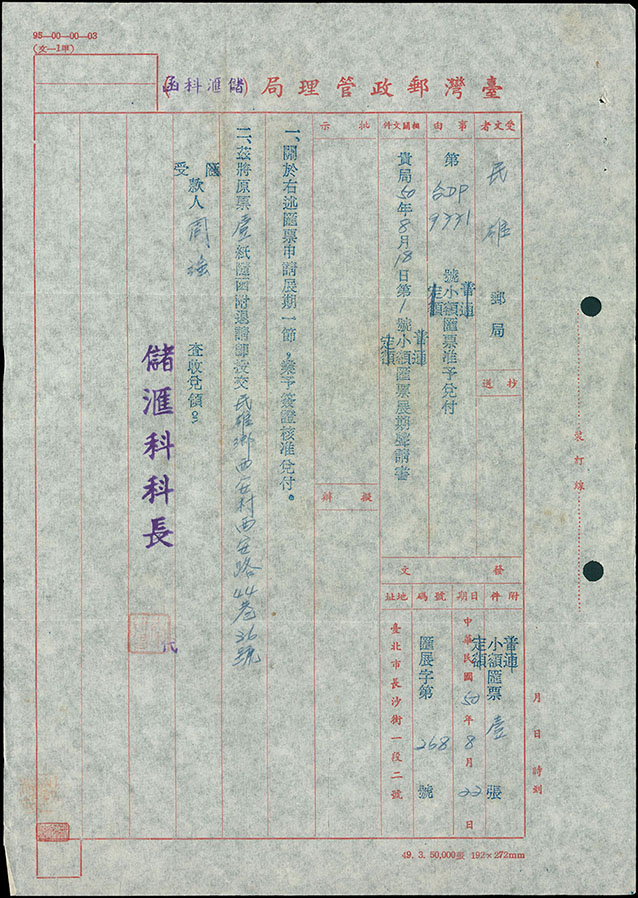 98—00—00—03
(文—1甲)
臺灣郵政管理局(儲滙科函)
受文者
民雄郵局
抄送
事由
第 SDP 9331 號小額匯票准予兌付
普通
定額
相關文件
貴局50年8月18日第1號小額匯票展期聲請書
普通
定額
批示
擬辦
發文
附件
普通
小額匯票壹張
定額
日期
中華民國50年8月22日
號碼
匯展字第268號
地址
臺北市長沙街一段二號
一、關於右述匯票申請展期一節，業予簽證核准兌付。
二、茲將原票壹紙隨函附還請即發交民雄鄉西安村西安路44巷36號
匯
受款人周 查收兌領。
儲滙科科長
代
裝訂線
月 日 時到
49. 3. 50,000張 192×272mm